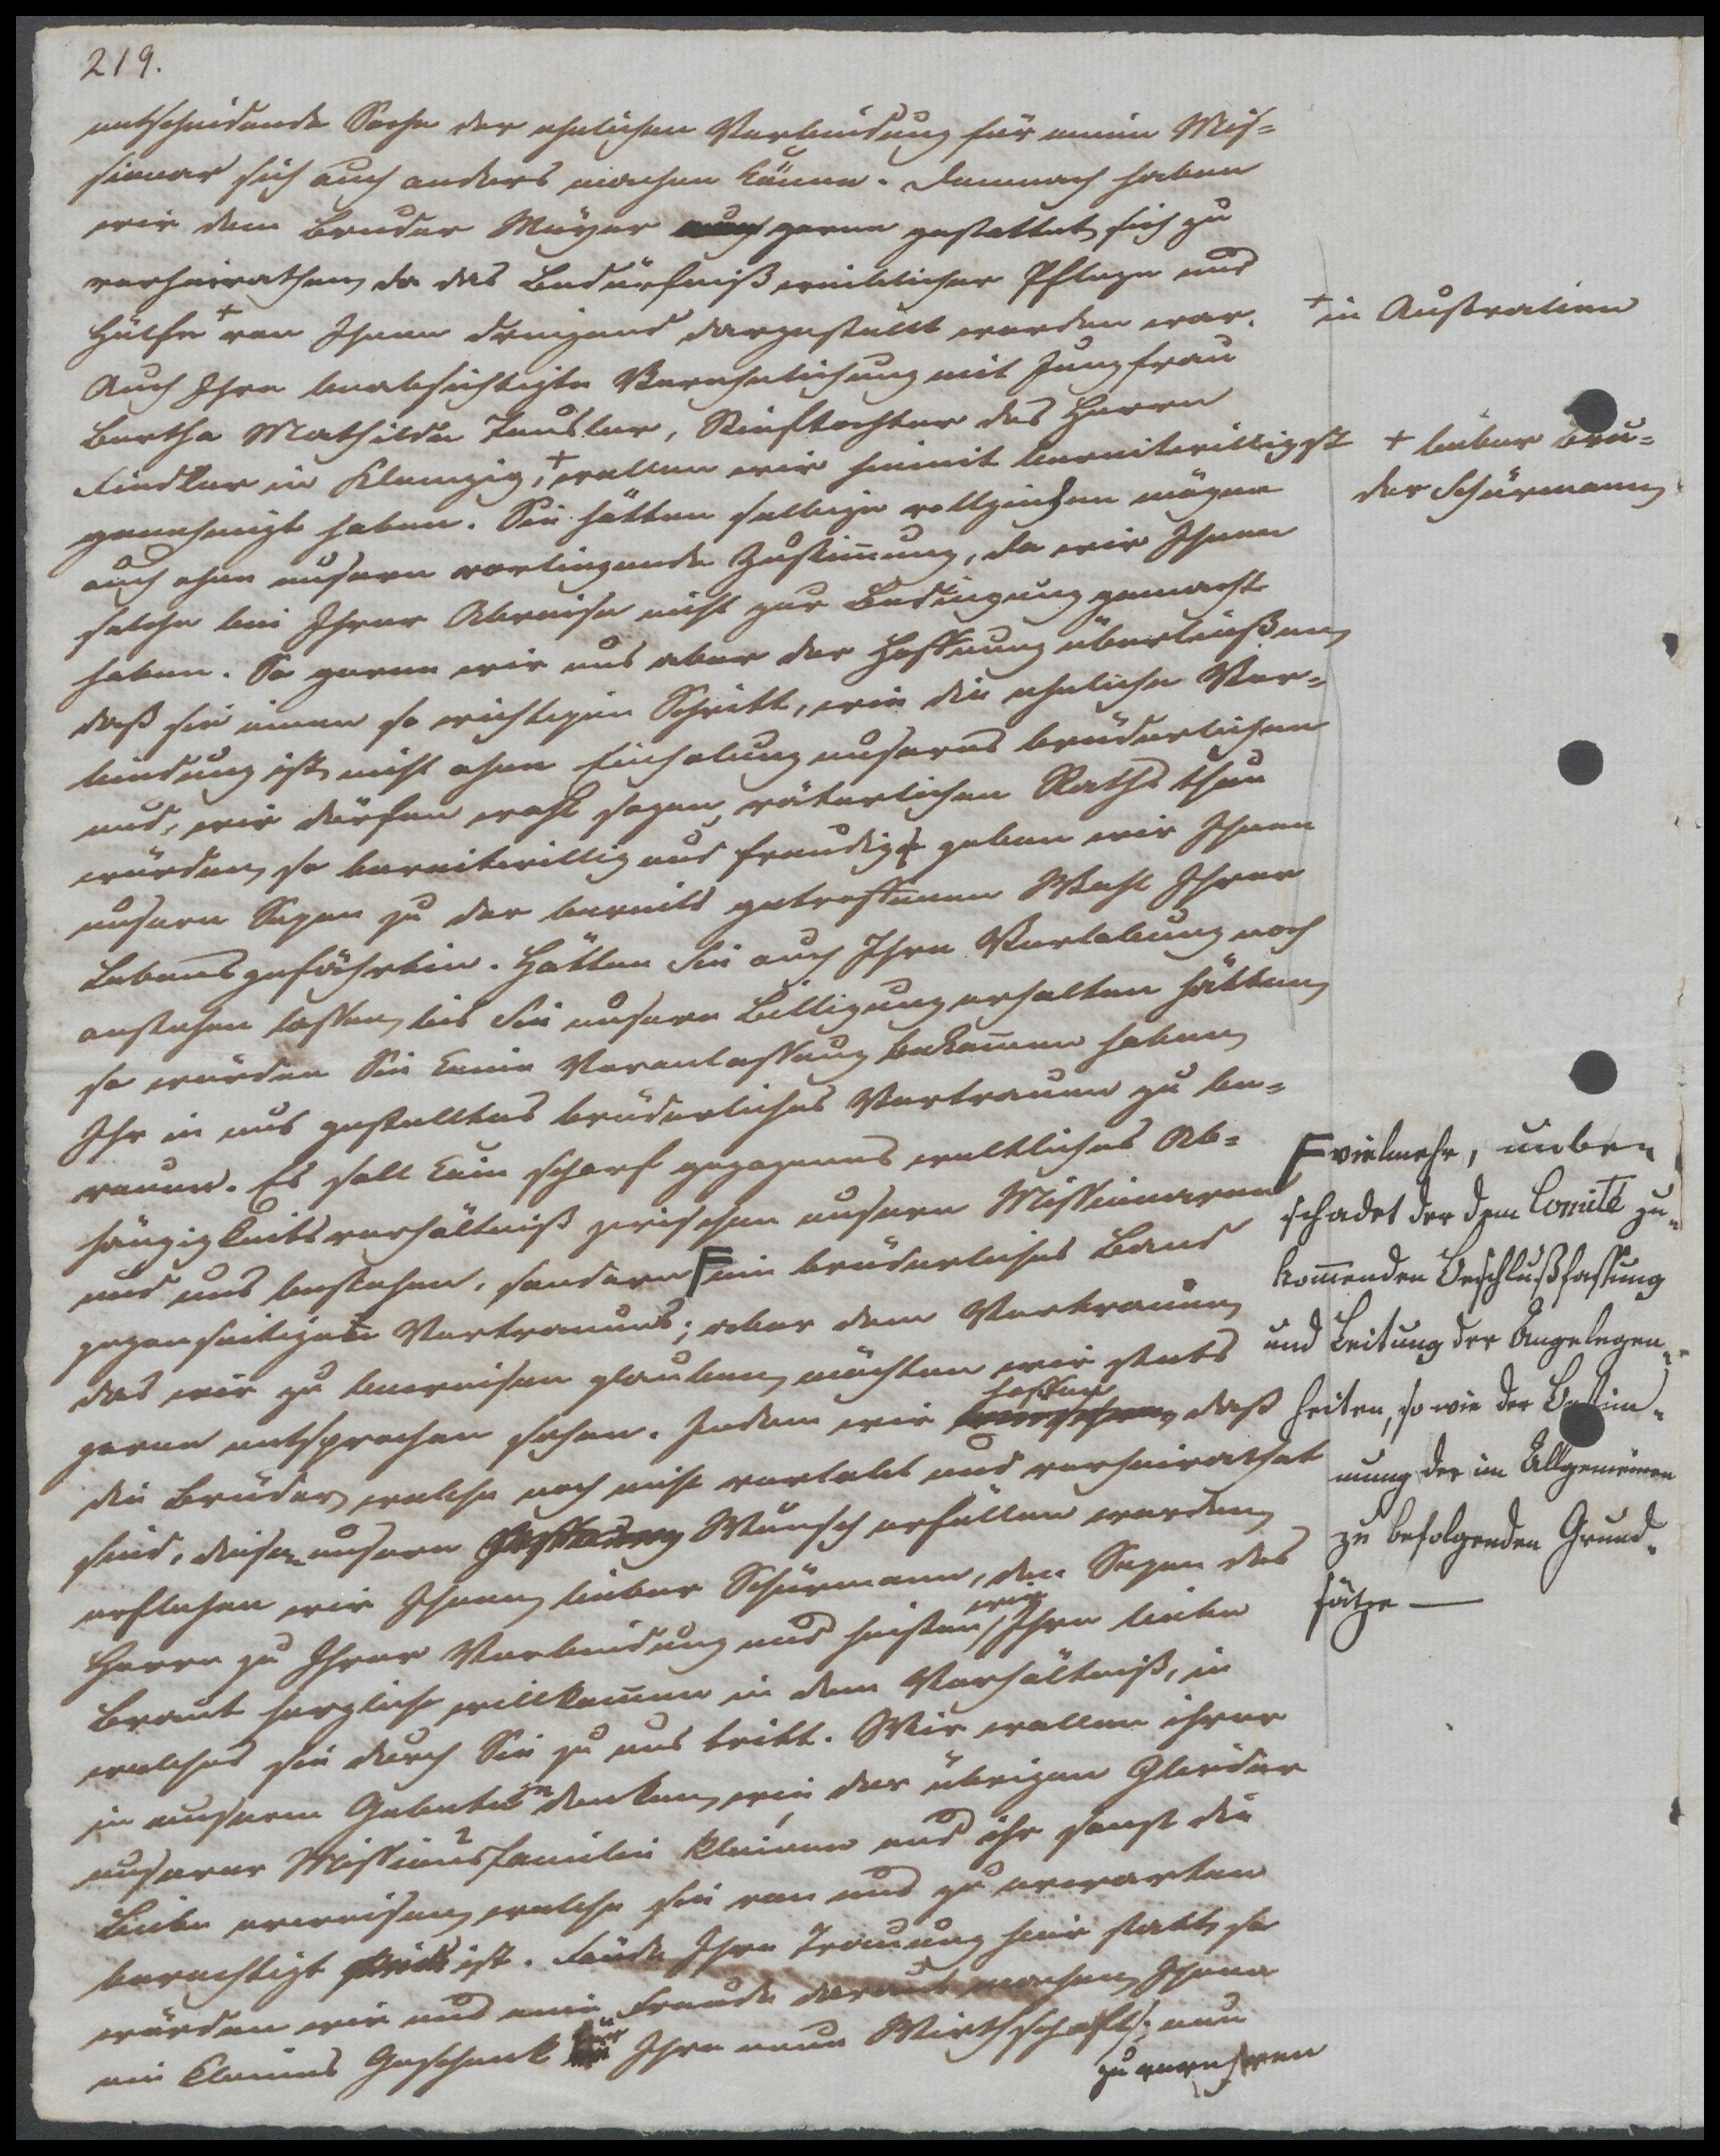 219.
entscheidende Sache der ehelichen Verbindung für einen Mis=
sionar sich auch anders machen könne. Demnach haben
wir dem Bruder Meyer gerne gestattet, sich zu
verheirathen, da das Bedürfniß weiblicher Pflege und
Hülfe + von Ihnen dringend dargestellt worden war.
+ in Australien
Auch Ihre beabsichtigte Verehelichung mit Jungfrau
Bertha Mathilde Teusler, Stieftochter des Herrn
Fiedler in Klemzig, + wollen wir hiemit bereitwilligst
+ lieber Bru=
der Schürmann,
genehmigt haben. Sie hätten selbige vollziehen mögen
auch ohne unsere vorliegende Zustimmung, da wir Ihnen
solche bei Ihrer Abreise nicht zur Bedingung gemacht
haben. So gerne wir uns aber der Hoffnung überließen,
daß sie einen so wichtigen Schritt, wie die eheliche Ver=
bindung ist, nicht ohne Einholung unseres brüderlichen
und, wir dürfen wohl sagen, väterlichen Raths thun
würden, so bereitwillig und freudig geben wir Ihnen
unsern Segen zu der bereits getroffenen Wahl Ihrer
Lebensgefährtin. Hätten Sie auch Ihre Verlobung noch
anstehen lassen, bis Sie unsere Billigung erhalten hätten,
so würden Sie keine Veranlassung bekommen haben,
Ihr in uns gestelltes brüderliches Vertrauen zu be=
reuen. Es soll kein scharf gezogenes weltliches Ab=
hängigkeitsverhältniß zwischen unsern Missionaren
und uns bestehen, sondern F ein brüderliches Band
F vielmehr, unbe=
schadet der dem Comité zu=
kommenden Beschlußfassung
und Leitung der Angelegen=
heiten, so wie der Bestim=
mung der im Allgemeinen
zu befolgenden Grund=
sätze —
gegenseitigen Vertrauens; aber dem Vertrauen,
das wir zu beweisen glauben, möchten wir stets
gerne entsprochen sehen. Indem wir hoffen, daß
die Brüder, welche noch nicht verlobt und verheirathet
sind, diesen unsern Wunsch erfüllen werden,
erflehen wir Ihnen, lieber Schürmann, den Segen des
Herrn zu Ihrer Verbindung und heißen wir Ihre liebe
Braut herzlich willkommen in dem Verhältniß, in
welches sie durch Sie zu uns tritt. Wir wollen ihrer
in unserem Gebete denken, wie der übrigen Glieder
unserer kleinen Missionsfamilie und ihr sonst die
Liebe erweisen, welche sie von uns zu erwarten
berechtigt ist. Fände Ihre Trauung hier statt, so
würden wir uns eine Freude daraus machen, Ihnen
ein kleines Geschenk für Ihre neue Wirthschaft nun
zu verehren